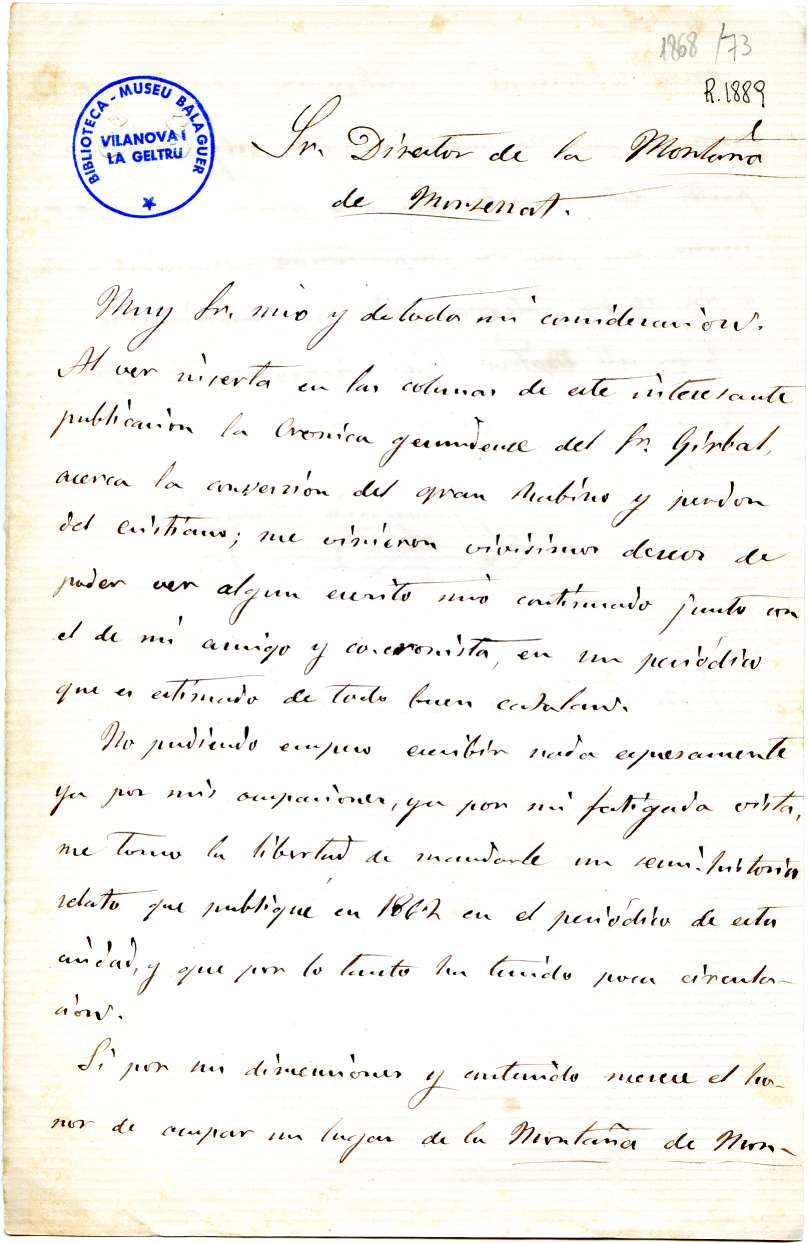 1868/73
R.1889
BIBLIOTECA - MUSEU BALAGUER
VILANOVA i
LA GELTRÚ
Sr. Director de la Montaña
de Monserrat.
Muy Sr. mio y de toda mi consideracion.
Al ver inserta en las colunas de este interesante
publicacion la Cronica gerundense del Sr. Girbal,
acerca la conversion del gran Rabino y perdon
del cristiano; me vinieron vivisimos deseos de
poder ver algun escrito mio continuado junto con
el de mi amigo y concronista, en un periódico
que es estimado de todo buen catalan.
No pudiendo empero escribir nada espresamente
ya por mis ocupaciones, ya por mi fatigada vista,
me tomo la libertad de mandarle un semi-historico
relato que publiqué en 1862 en el periódico de esta
ciudad, y que por lo tanto ha tenido poca circula-
cion.
Si por sus dimensiones y contenido merece el ho-
nor de ocupar un lugar de la Montaña de Mon-